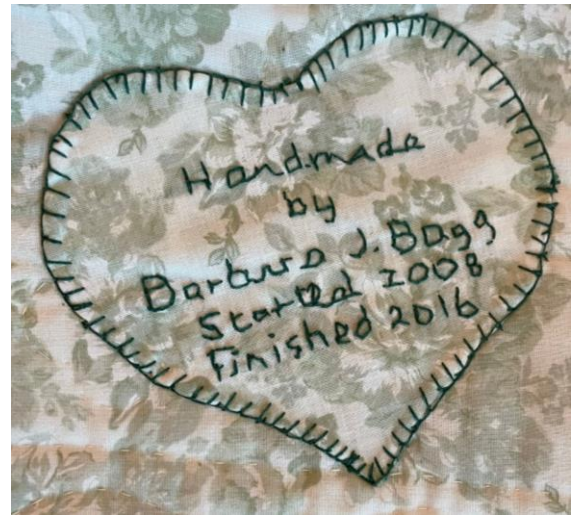 Handmade
by
Barbara J. Bagg
Started 2008
Finished 2016